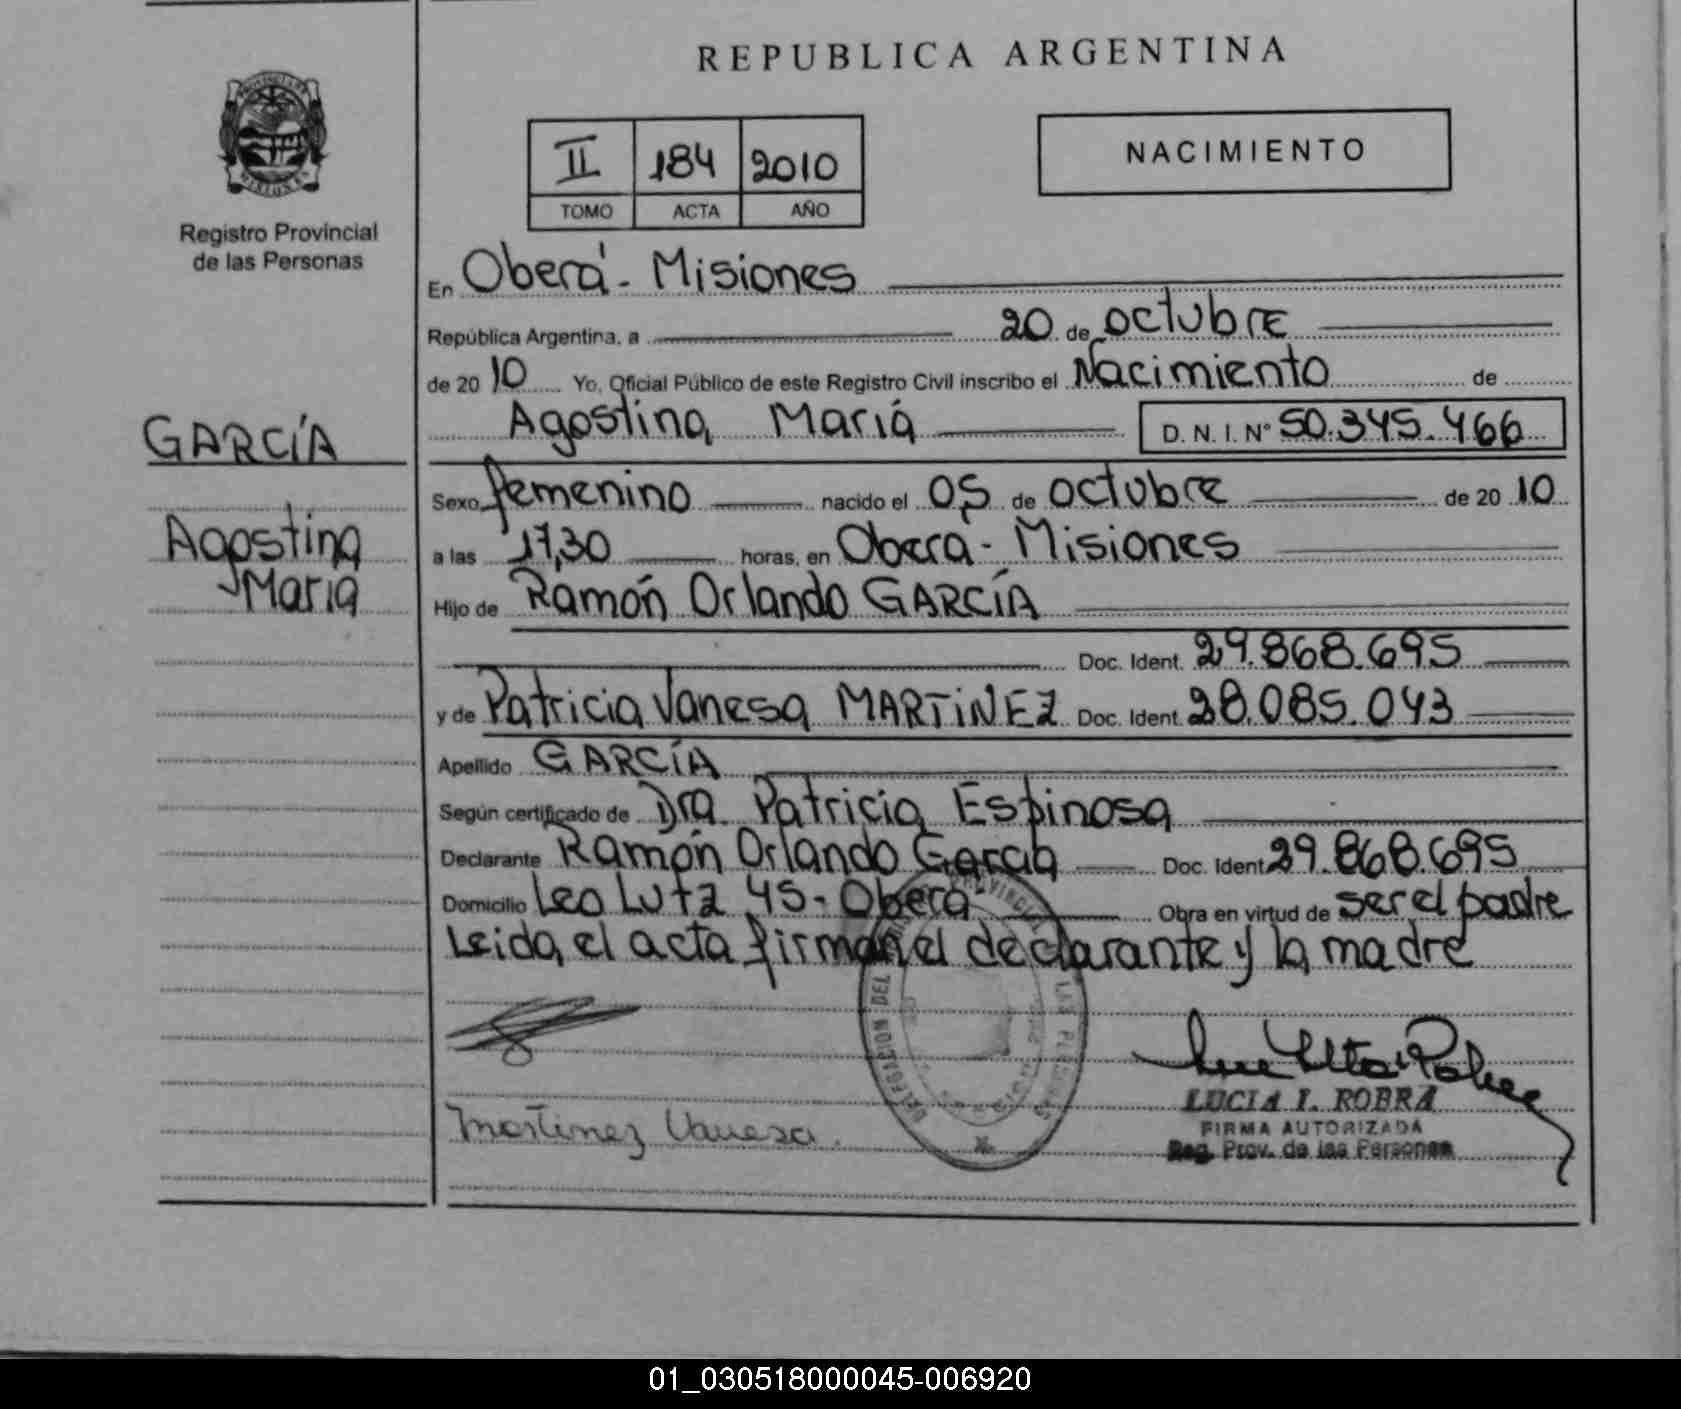 REPUBLICA ARGENTINA
II 184 2010
TOMO ACTA AÑO
NACIMIENTO
Registro Provincial
de las Personas
GARCÍA
Agostina
María
En Oberá - Misiones
República Argentina, a 20 de octubre
de 2010 Yo, Oficial Público de este Registro Civil inscribo el Nacimiento de
Agostina María D. N. I. N° 50.345.466
Sexo femenino nacido el 05 de octubre de 2010
a las 17,30 horas, en Oberá - Misiones
Hijo de Ramón Orlando GARCÍA
Doc. Ident. 29.868.695
y de Patricia Vanesa MARTíNEZ Doc. Ident. 28.085.043
Apellido GARCÍA
Según certificado de Dra. Patricia Espinosa
Declarante Ramón Orlando García Doc. Ident 29.868.695
Domicilio Leo Lutz 45 - Oberá Obra en virtud de ser el padre
Leida el acta firman el declarante y la madre
DELEGACION DEL PROVINCIAL LAS PERSONAS
Martinez Vanesa.
LUCIA I. ROBRA
FIRMA AUTORIZADA
Reg. Prov. de las Personas
01_030518000045-006920